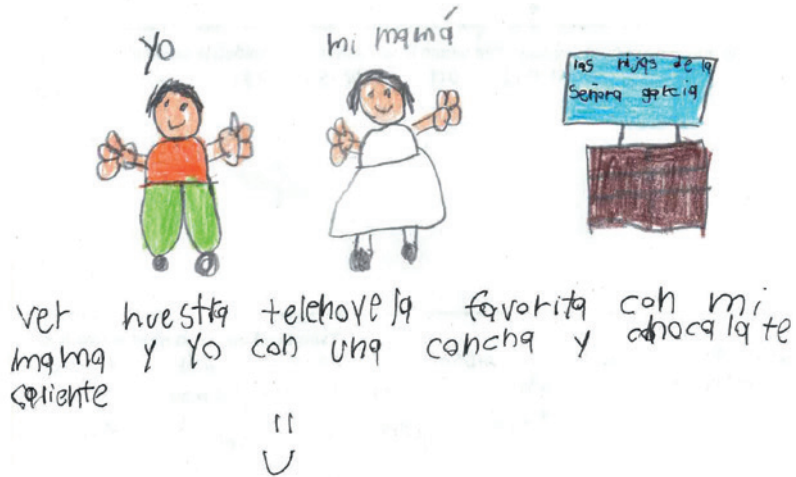 yo
mi mamá
las hijas de la
Señora garcia
ver nuestra telenovela favorita con mi
mama y yo con una concha y chocalate
caliente